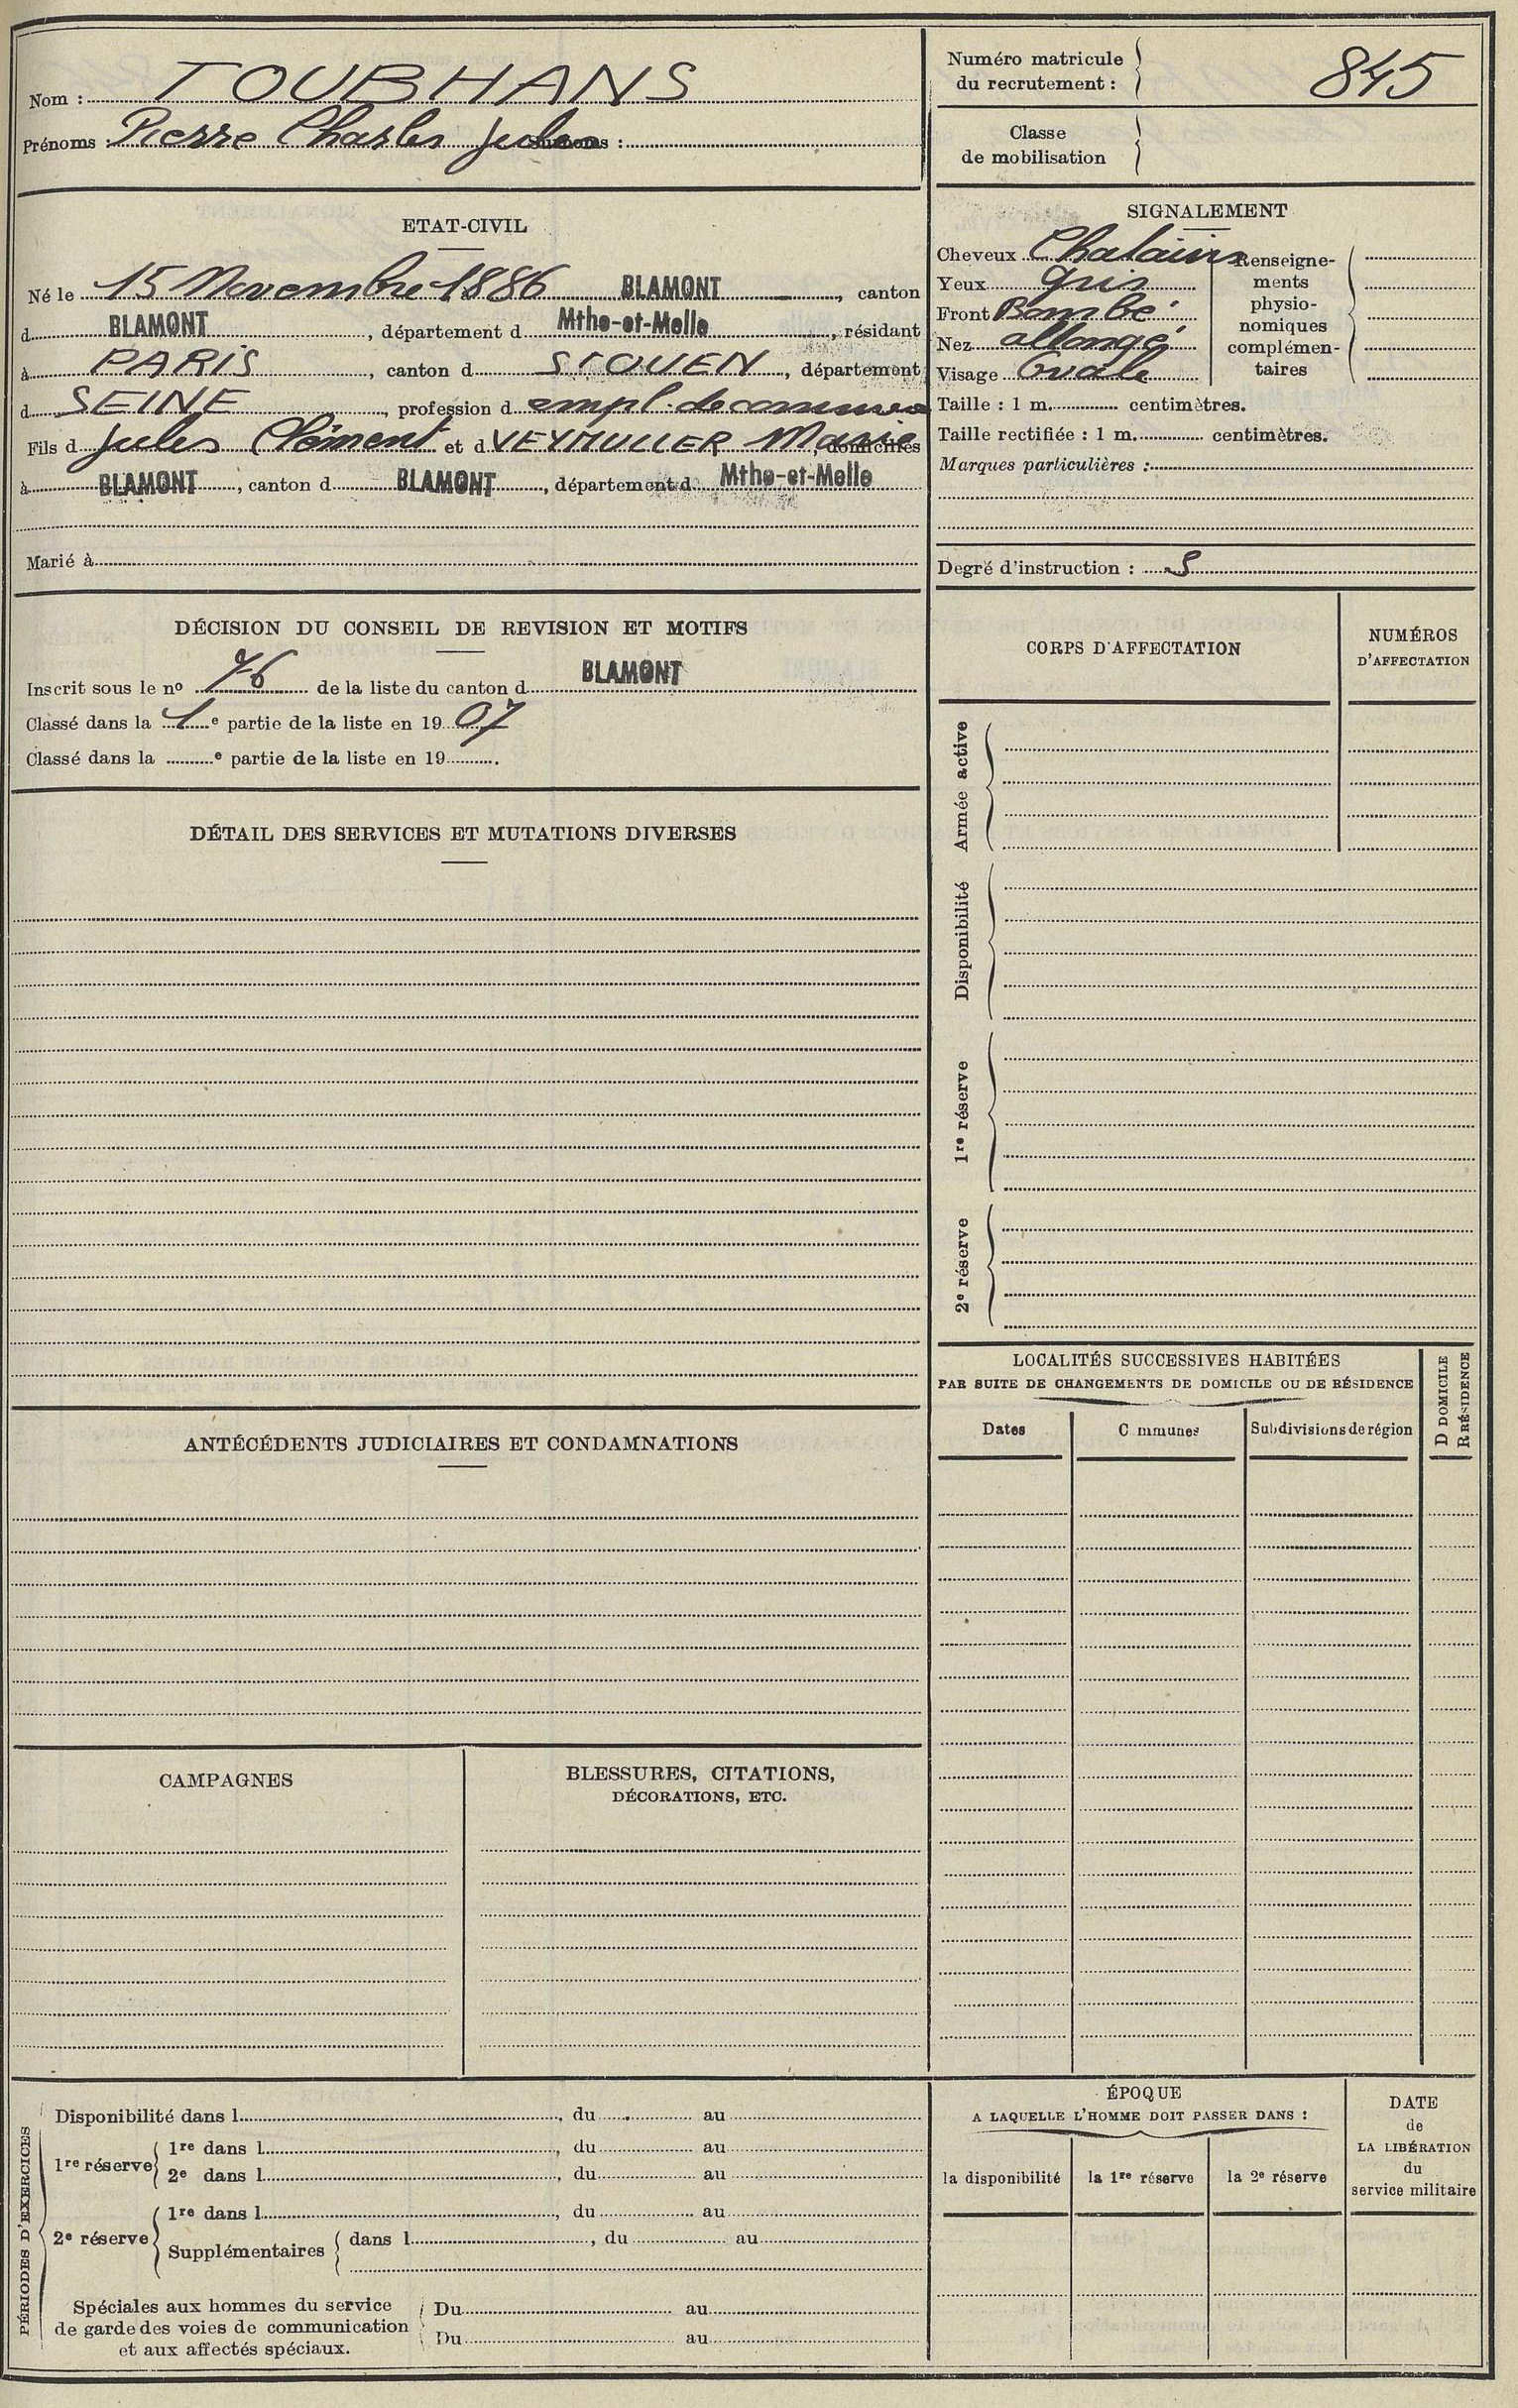 Nom : TOUBHANS
Prénoms : Pierre Charles Jules
ETAT-CIVIL
Né le 15 Novembre 1886 BLAMONT, canton
d BLAMONT, département d Mthe-et-Melle, résidant
à PARIS, canton d ST OUEN, département
d SEINE, profession d empl. de commerce
Fils d Jules Clément et d VEYMULLER Marie, domiciliés
à BLAMONT, canton d BLAMONT, département d Mthe-et-Melle
Marié à
DÉCISION DU CONSEIL DE REVISION ET MOTIFS
Inscrit sous le nº 76 de la liste du canton d BLAMONT
Classé dans la 1e partie de la liste en 1907
Classé dans la e partie de la liste en 19
DÉTAIL DES SERVICES ET MUTATIONS DIVERSES
ANTÉCÉDENTS JUDICIAIRES ET CONDAMNATIONS
CAMPAGNES
BLESSURES, CITATIONS,
DÉCORATIONS, ETC.
Numéro matricule
du recrutement : 845
Classe
de mobilisation
SIGNALEMENT
Cheveux Chatains
Yeux gris
Front Bombé
Nez allongé
Visage Ovale
Renseigne-
ments
physio-
nomiques
complémen-
taires
Taille : 1 m. centimètres.
Taille rectifiée : 1 m. centimètres.
Marques particulières :
Degré d'instruction : 3
CORPS D'AFFECTATION
NUMÉROS
D'AFFECTATION
Armée active
Disponibilité
1re réserve
2e réserve
LOCALITÉS SUCCESSIVES HABITÉES
PAR SUITE DE CHANGEMENTS DE DOMICILE OU DE RÉSIDENCE
D DOMICILE
R RÉSIDENCE
Dates C mmunes Subdivisions de région
PÉRIODES D'EXERCICES
Disponibilité dans l, du au
1re réserve
1re dans l, du au
2e dans l, du au
2e réserve
1re dans l, du au
Supplémentaires dans l, du au
Spéciales aux hommes du service
de garde des voies de communication
et aux affectés spéciaux.
Du au
Du au
ÉPOQUE
A LAQUELLE L'HOMME DOIT PASSER DANS :
la disponibilité la 1re réserve la 2e réserve
DATE
de
LA LIBÉRATION
du
service militaire